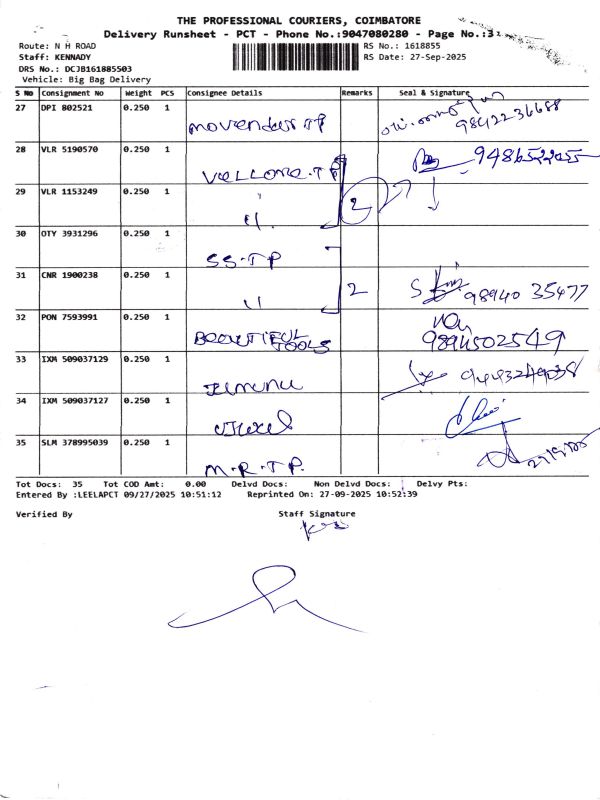 THE PROFESSIONAL COURIERS, COIMBATORE
Delivery Runsheet - PCT - Phone No.:9047080280 - Page No.:3
Route: N H ROAD
RS No.: 1618855
Staff: KENNADY
RS Date: 27-Sep-2025
DRS No.: DCJB161885503
Vehicle: Big Bag Delivery
S No Consignment No Weight PCS Consignee Details Remarks Seal & Signature
27 DPI 802521 0.250 1
9842236688
28 VLR 5190570 0.250 1
VELLORE.TP
29 VLR 1153249 0.250 1
" 2
30 OTY 3931296 0.250 1
SS.TP
31 CNR 1900238 0.250 1
" 2 98940 35477
32 PON 7593991 0.250 1
BEAUTIFUL TOOLS 9894502549
33 IXM 509037129 0.250 1
34 IXM 509037127 0.250 1
35 SLM 378995039 0.250 1
M.R.T.P.
Tot Docs: 35 Tot COD Amt: 0.00 Delvd Docs: Non Delvd Docs: Delvy Pts:
Entered By :LEELAPCT 09/27/2025 10:51:12 Reprinted On: 27-09-2025 10:52:39
Verified By Staff Signature